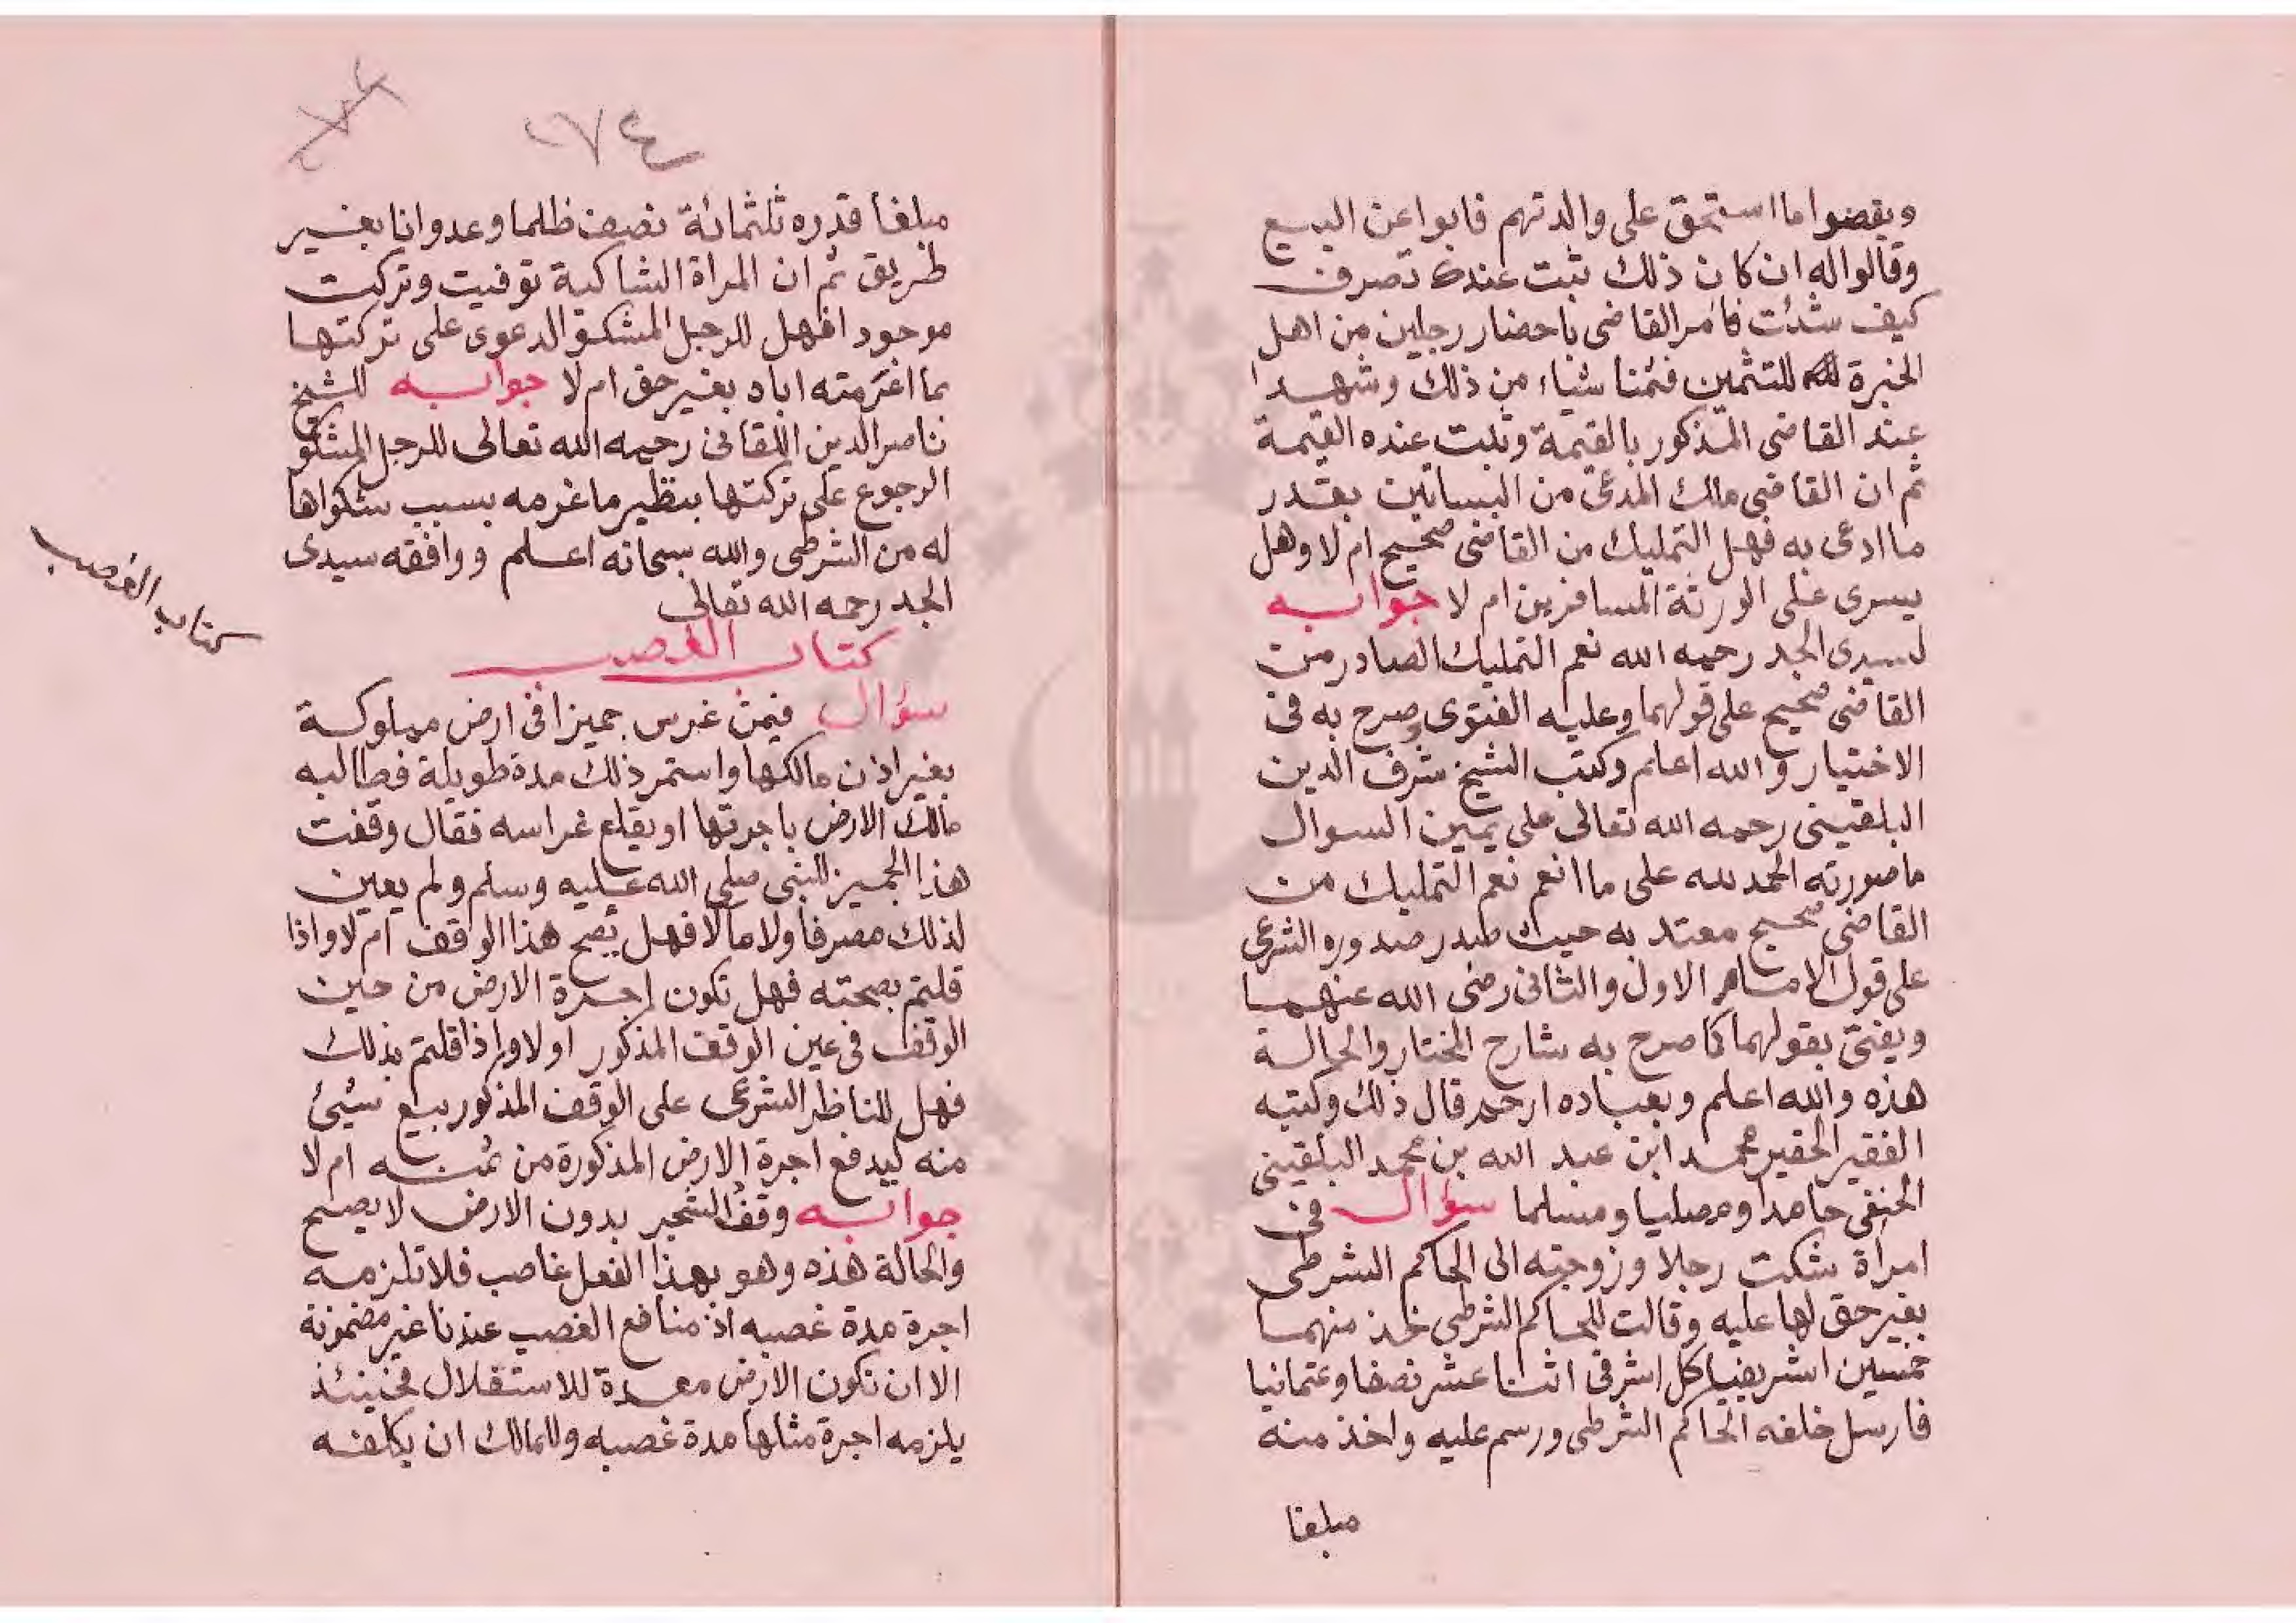 ويقضوا ما استحق على والدتهم فابوا عن البيع
وقالوا له ان كان ذلك ثبت عندك تصرف
كيف شئت فامر القاضى باحضار رجلين من اهل
الخبرة للتثمين فثمنا شياء من ذلك وشهدا
عند القاضى المذكور بالقيمة وثبت عنده القيمة
ثم ان القاضى ملك المدعى من البساتين بقدر
ما ادعى به فهل التمليك من القاضى صحيح ام لا وهل
يسرى على الورثة المسافرين ام لا جوابه
لسيدى الجد رحمه الله نعم التمليك الصادر من
القاضى صحيح على قولهما وعليه الفتوى وصرح به فى
الاختيار والله اعلم وكتب الشيخ شرف الدين
البلقينى رحمه الله تعالى على يمين السوال
ما صورته الحمد لله على ما انعم نعم التمليك من
القاضى صحيح معتد به حيث صدر صدوره الشرعى
على قول الامام الاول والثانى رضى الله عنهما
ويفتى بقولهما كما صرح به شارح المختار والحالة
هذه والله اعلم وبعباده ارحم قال ذلك وكتبه
الفقير الحقير محمد ابن عبد الله بن محمد البلقينى
الحنفى حامدا ومصليا ومسلما سؤال فى
امراة شكت رجلا وزوجته الى الحاكم الشرطى
بغير حق لها عليه وقالت للحاكم الشرطى خذ منهما
خمسين اشرفيا كل اشرفى اثنا عشر نصفا وعثمانيا
فارسل خلفه الحاكم الشرطى ورسم عليه واخذ منه
مبلغا
٢٧٤
مبلغا قدره ثلثمائة نصف ظلما وعدوانا بغير
طريق ثم ان المراة الشاكية توفيت وتركت
موجودا فهل للرجل المشكو الدعوى على تركتها
بما اغرمته اياه بغير حق ام لا جوابه للشيخ
ناصر الدين اللقانى رحمه الله تعالى للرجل المشكو
الرجوع على تركتها بنظير ما غرمه بسبب شكواها
له من الشرطى والله سبحانه اعلم ووافقه سيدى
الجد رحمه الله تعالى
كتاب الغصب
كتاب الغصب
سؤال فيمن غرس جميزا فى ارض مملوكة
بغير اذن مالكها واستمر ذلك مدة طويلة فطالبه
مالك الارض باجرتها او يقلع غراسه فقال وقفت
هذا الجميز للنبى صلى الله عليه وسلم ولم يعين
لذلك مصرفا ولا مالا فهل يصح هذا الوقف ام لا واذا
قلتم بصحته فهل تكون اجرة الارض من حين
الوقف فى عين الوقف المذكور او لا واذا قلتم بذلك
فهل للناظر الشرعى على الوقف المذكور بيع شيئ
منه ليدفع اجرة الارض المذكورة من ثمنه ام لا
جوابه وقف الشجر بدون الارض لا يصح
والحالة هذه وهو بهذا الفعل غاصب فلا تلزمه
اجرة مدة غصبه اذ منافع الغصب عندنا غير مضمونة
الا ان تكون الارض معدة للاستغلال فحينئذ
يلزمه اجرة مثلها مدة غصبه وللمالك ان يكلفه